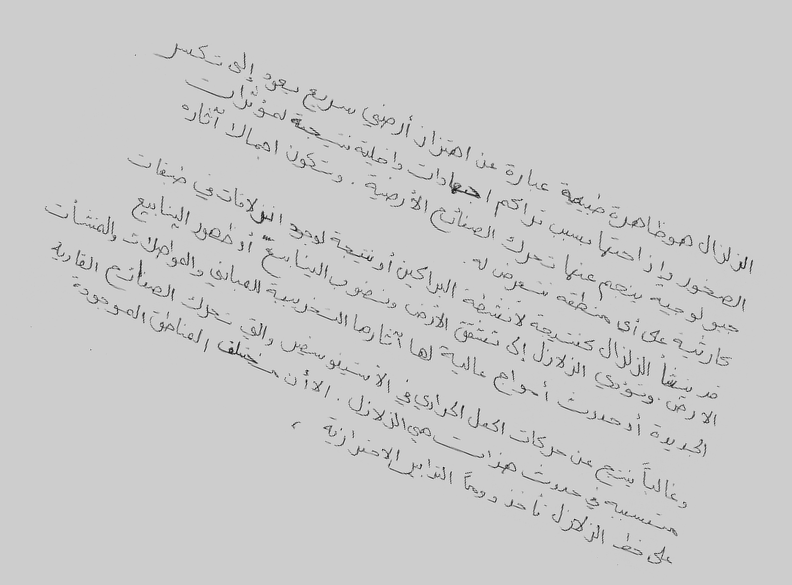 الزلزال هو ظاهرة طبيعية عبارة عن اهتزاز أرضي سريع يعود إلى تكسر
الصخور وإزاحتها بسبب تراكم اجهادات داخلية نتيجة لمؤثرات
جيولوجية ينجم عنها تحرك الصفائح الأرضية. وتكون اجمالا آثاره
كارثية على أى منطقة تتعرض له.
قد ينشأ الزلزال كنتيجة لانشطة البراكين أو نتيجة لوجود انزلاقات في طبقات
الارض. وتؤدي الزلازل إلى تشقق الأرض ونضوب الينابيع أو ظهور الينابيع
الجديدة أو حدوث أمواج عالية لها آثارها التخريبية المباني والمواصلات والمنشأت
وغالباً ينتج عن حركات الحمل الحراري في الأستينوسفير والتي تحرك الصفائح القارية
متسببه في حدوث هزات هي الزلازل. الا أن مختلف المناطق الموجودة
على خط الزلازل تأخذ دوماً التدابير الاحترازية